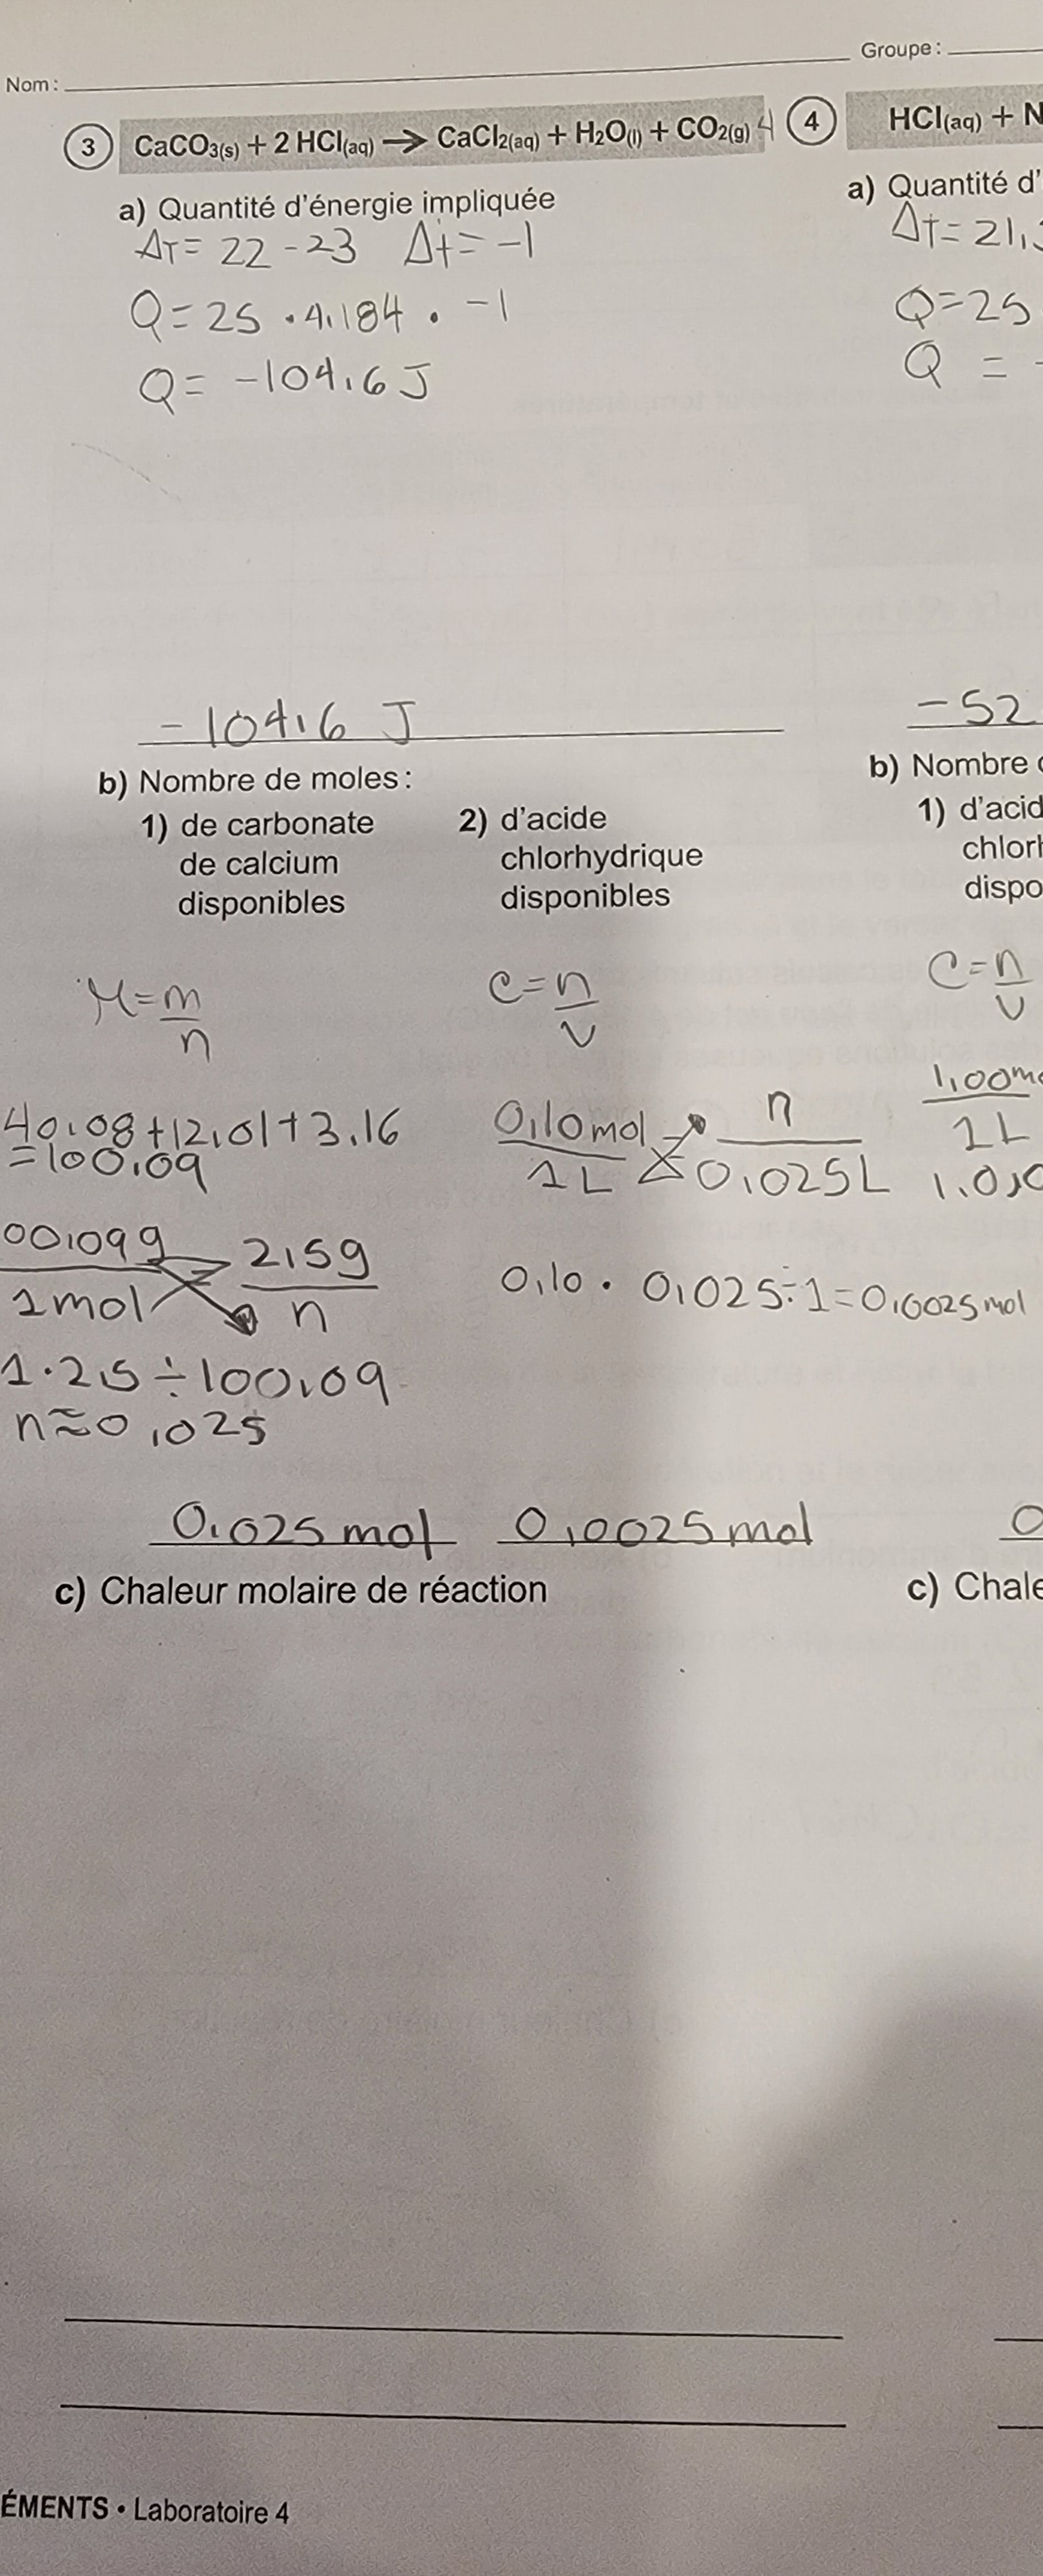 Nom :
Groupe :
3 CaCO3(s) + 2 HCl(aq) → CaCl2(aq) + H2O(l) + CO2(g) 4
a) Quantité d'énergie impliquée
ΔT = 22 - 23 Δt = -1
Q = 25 · 4,184 · -1
Q = -104,6 J
-104,6 J
b) Nombre de moles :
1) de carbonate
de calcium
disponibles
M = m/n
40,08 + 12,01 + 3.16
= 100,09
00,09g/1mol = 2,5g/n
1 · 2,5 ÷ 100,09
n ≈ 0,025
0,025 mol
2) d'acide
chlorhydrique
disponibles
C = n/v
0,10 mol/1L = n/0,025L
0,10 · 0,025 ÷ 1 = 0,0025 mol
0,0025 mol
c) Chaleur molaire de réaction
4 HCl(aq) + N
a) Quantité d'
Δt = 21,
Q = 25
Q = -
-52
b) Nombre
1) d'acid
chlorh
dispo
C = n/v
1,00 m/1L
1.0,0
0
c) Chale
ÉMENTS • Laboratoire 4